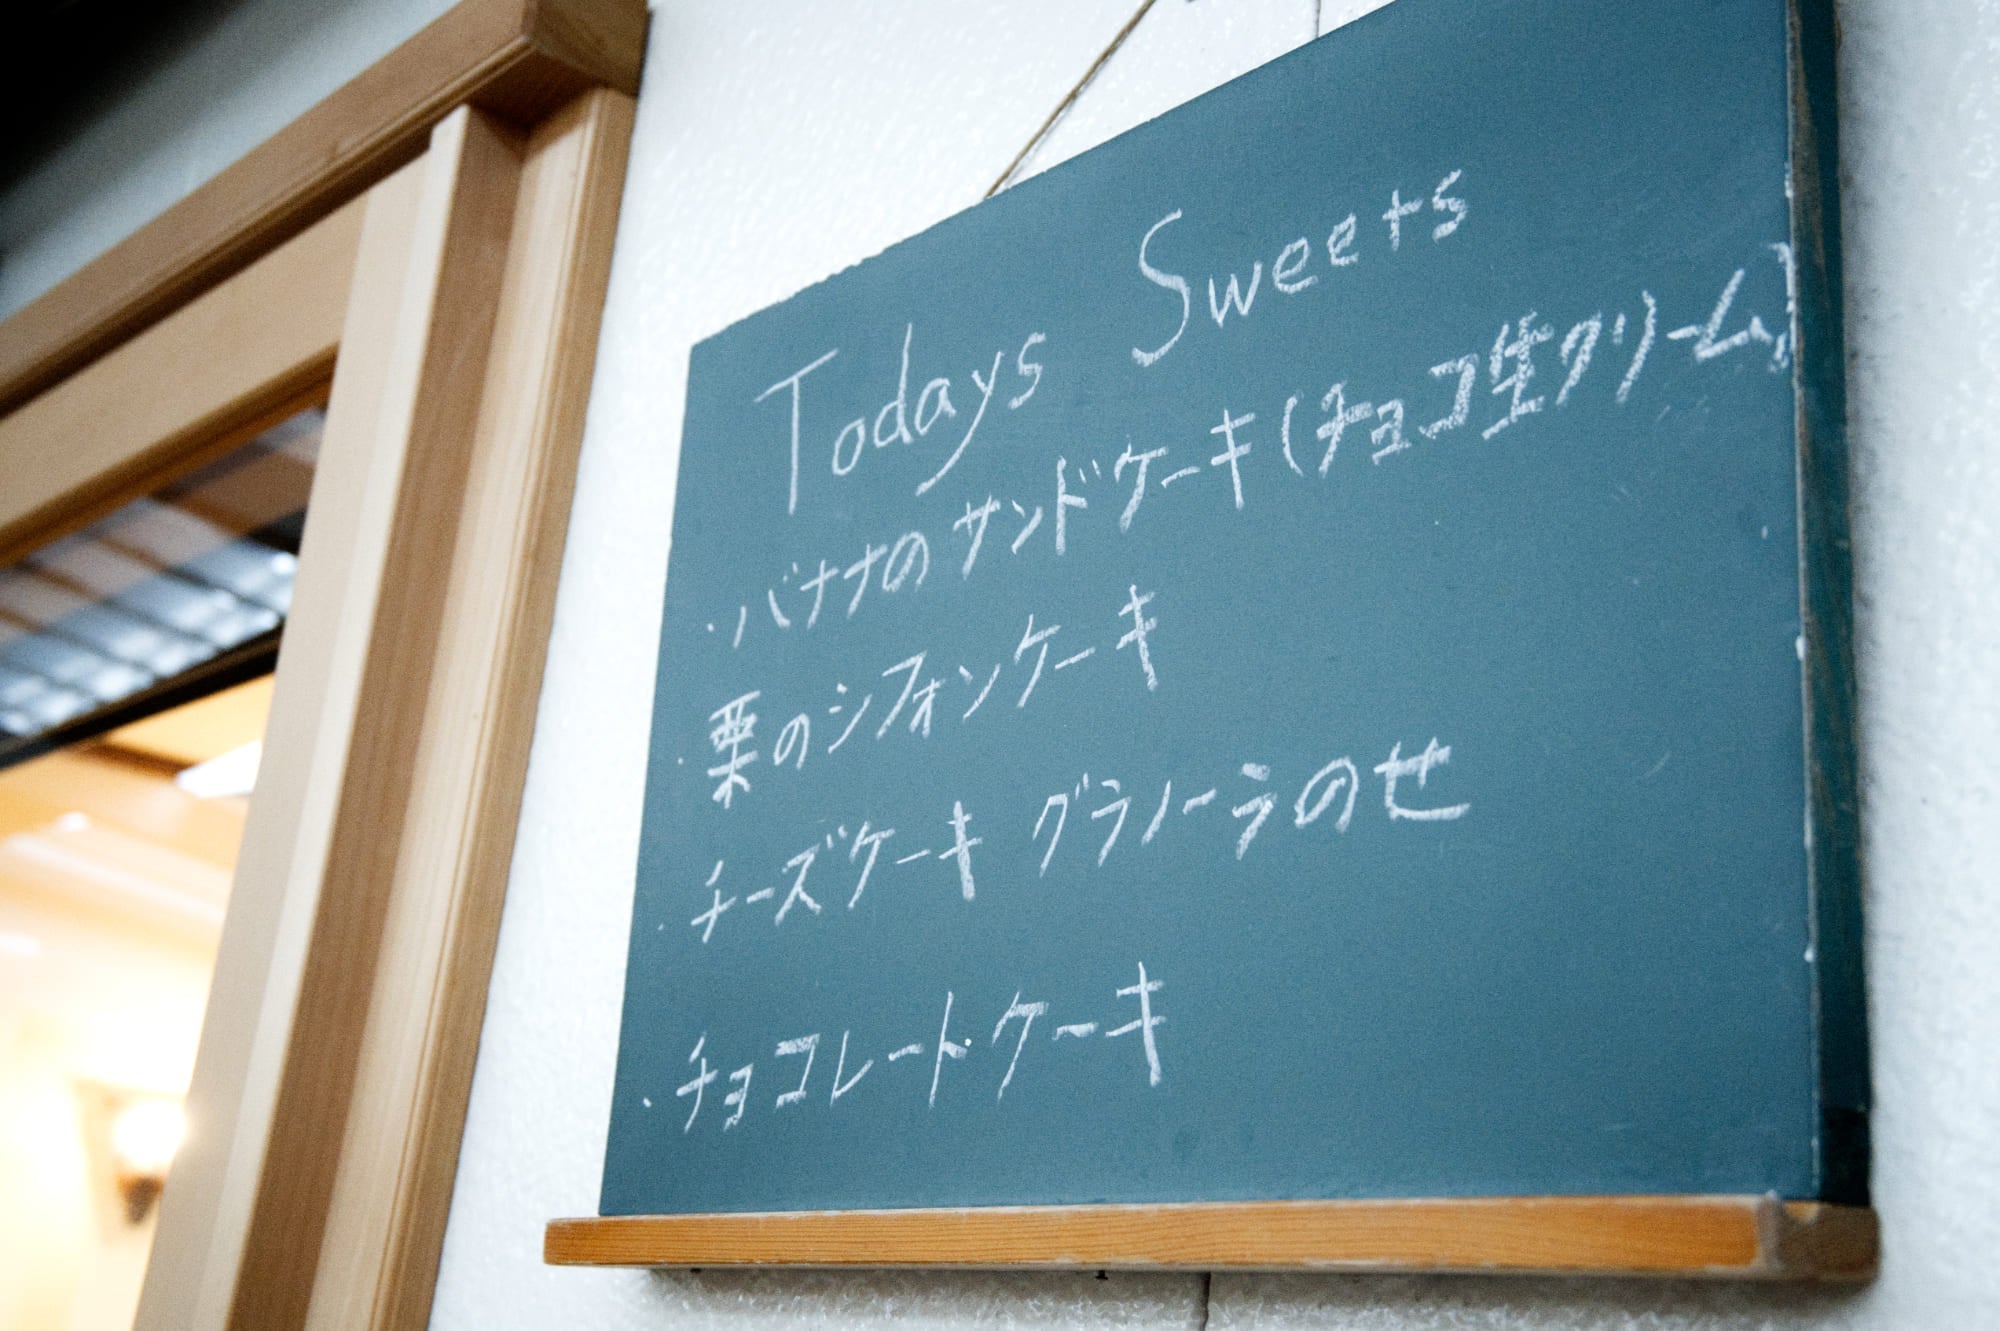 Todays Sweets
・バナナのサンドケーキ(チョコ生クリーム)
・栗のシフォンケーキ
・チーズケーキ グラノーラのせ
・チョコレートケーキ